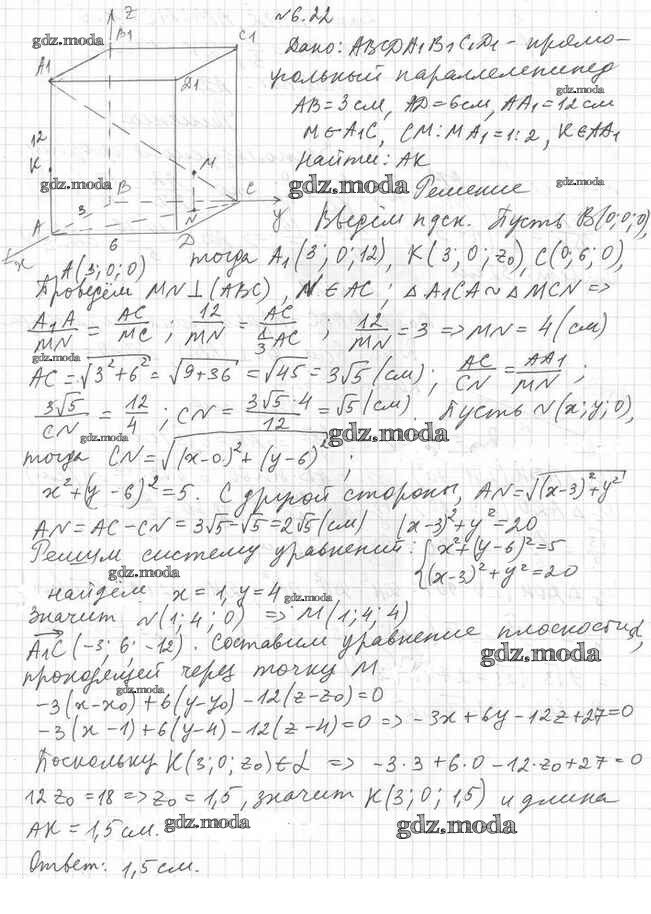 №6.22
Дано: ABCDA1B1C1D1 - прямо-
угольный параллелепипед
AB = 3 см, AD = 6 см, AA1 = 12 см
M ∈ A1C, CM : MA1 = 1 : 2, K ∈ AA1
Найти: AK
Решение
Введём пдск. Пусть B(0; 0; 0),
A(3; 0; 0) тогда A1(3; 0; 12), K(3; 0; z0), C(0; 6; 0),
Проведём MN ⊥ (ABC), N ∈ AC; △A1CA ~ △MCN =>
A1A/MN = AC/MC; 12/MN = AC/(1/3 AC); 12/MN = 3 => MN = 4 (см)
AC = √(3² + 6²) = √(9 + 36) = √45 = 3√5 (см); AC/CN = AA1/MN;
3√5/CN = 12/4; CN = 3√5·4/12 = √5 (см). Пусть N(x; y; 0),
тогда CN = √((x-0)² + (y-6)²);
x² + (y-6)² = 5. С другой стороны, AN = √((x-3)² + y²)
AN = AC - CN = 3√5 - √5 = 2√5 (см) (x-3)² + y² = 20
Решим систему уравнений: { x² + (y-6)² = 5
(x-3)² + y² = 20
найдём x = 1, y = 4
Значит N(1; 4; 0) => M(1; 4; 4)
A1C (-3; 6; -12). Составим уравнение плоскости α,
проходящей через точку M.
-3(x-x0) + 6(y-y0) - 12(z-z0) = 0
-3(x-1) + 6(y-4) - 12(z-4) = 0 => -3x + 6y - 12z + 27 = 0
Поскольку K(3; 0; z0) ∈ α => -3·3 + 6·0 - 12·z0 + 27 = 0
12z0 = 18 => z0 = 1,5, значит K(3; 0; 1,5) и длина
AK = 1,5 см.
Ответ: 1,5 см.
z
B1
C1
A1
D1
12
K
M
B
C
3
N
y
A
6
D
x
gdz.moda
gdz.moda
gdz.moda
gdz.moda
gdz.moda
gdz.moda
gdz.moda
gdz.moda
gdz.moda
gdz.moda
gdz.moda
gdz.moda
gdz.moda
gdz.moda